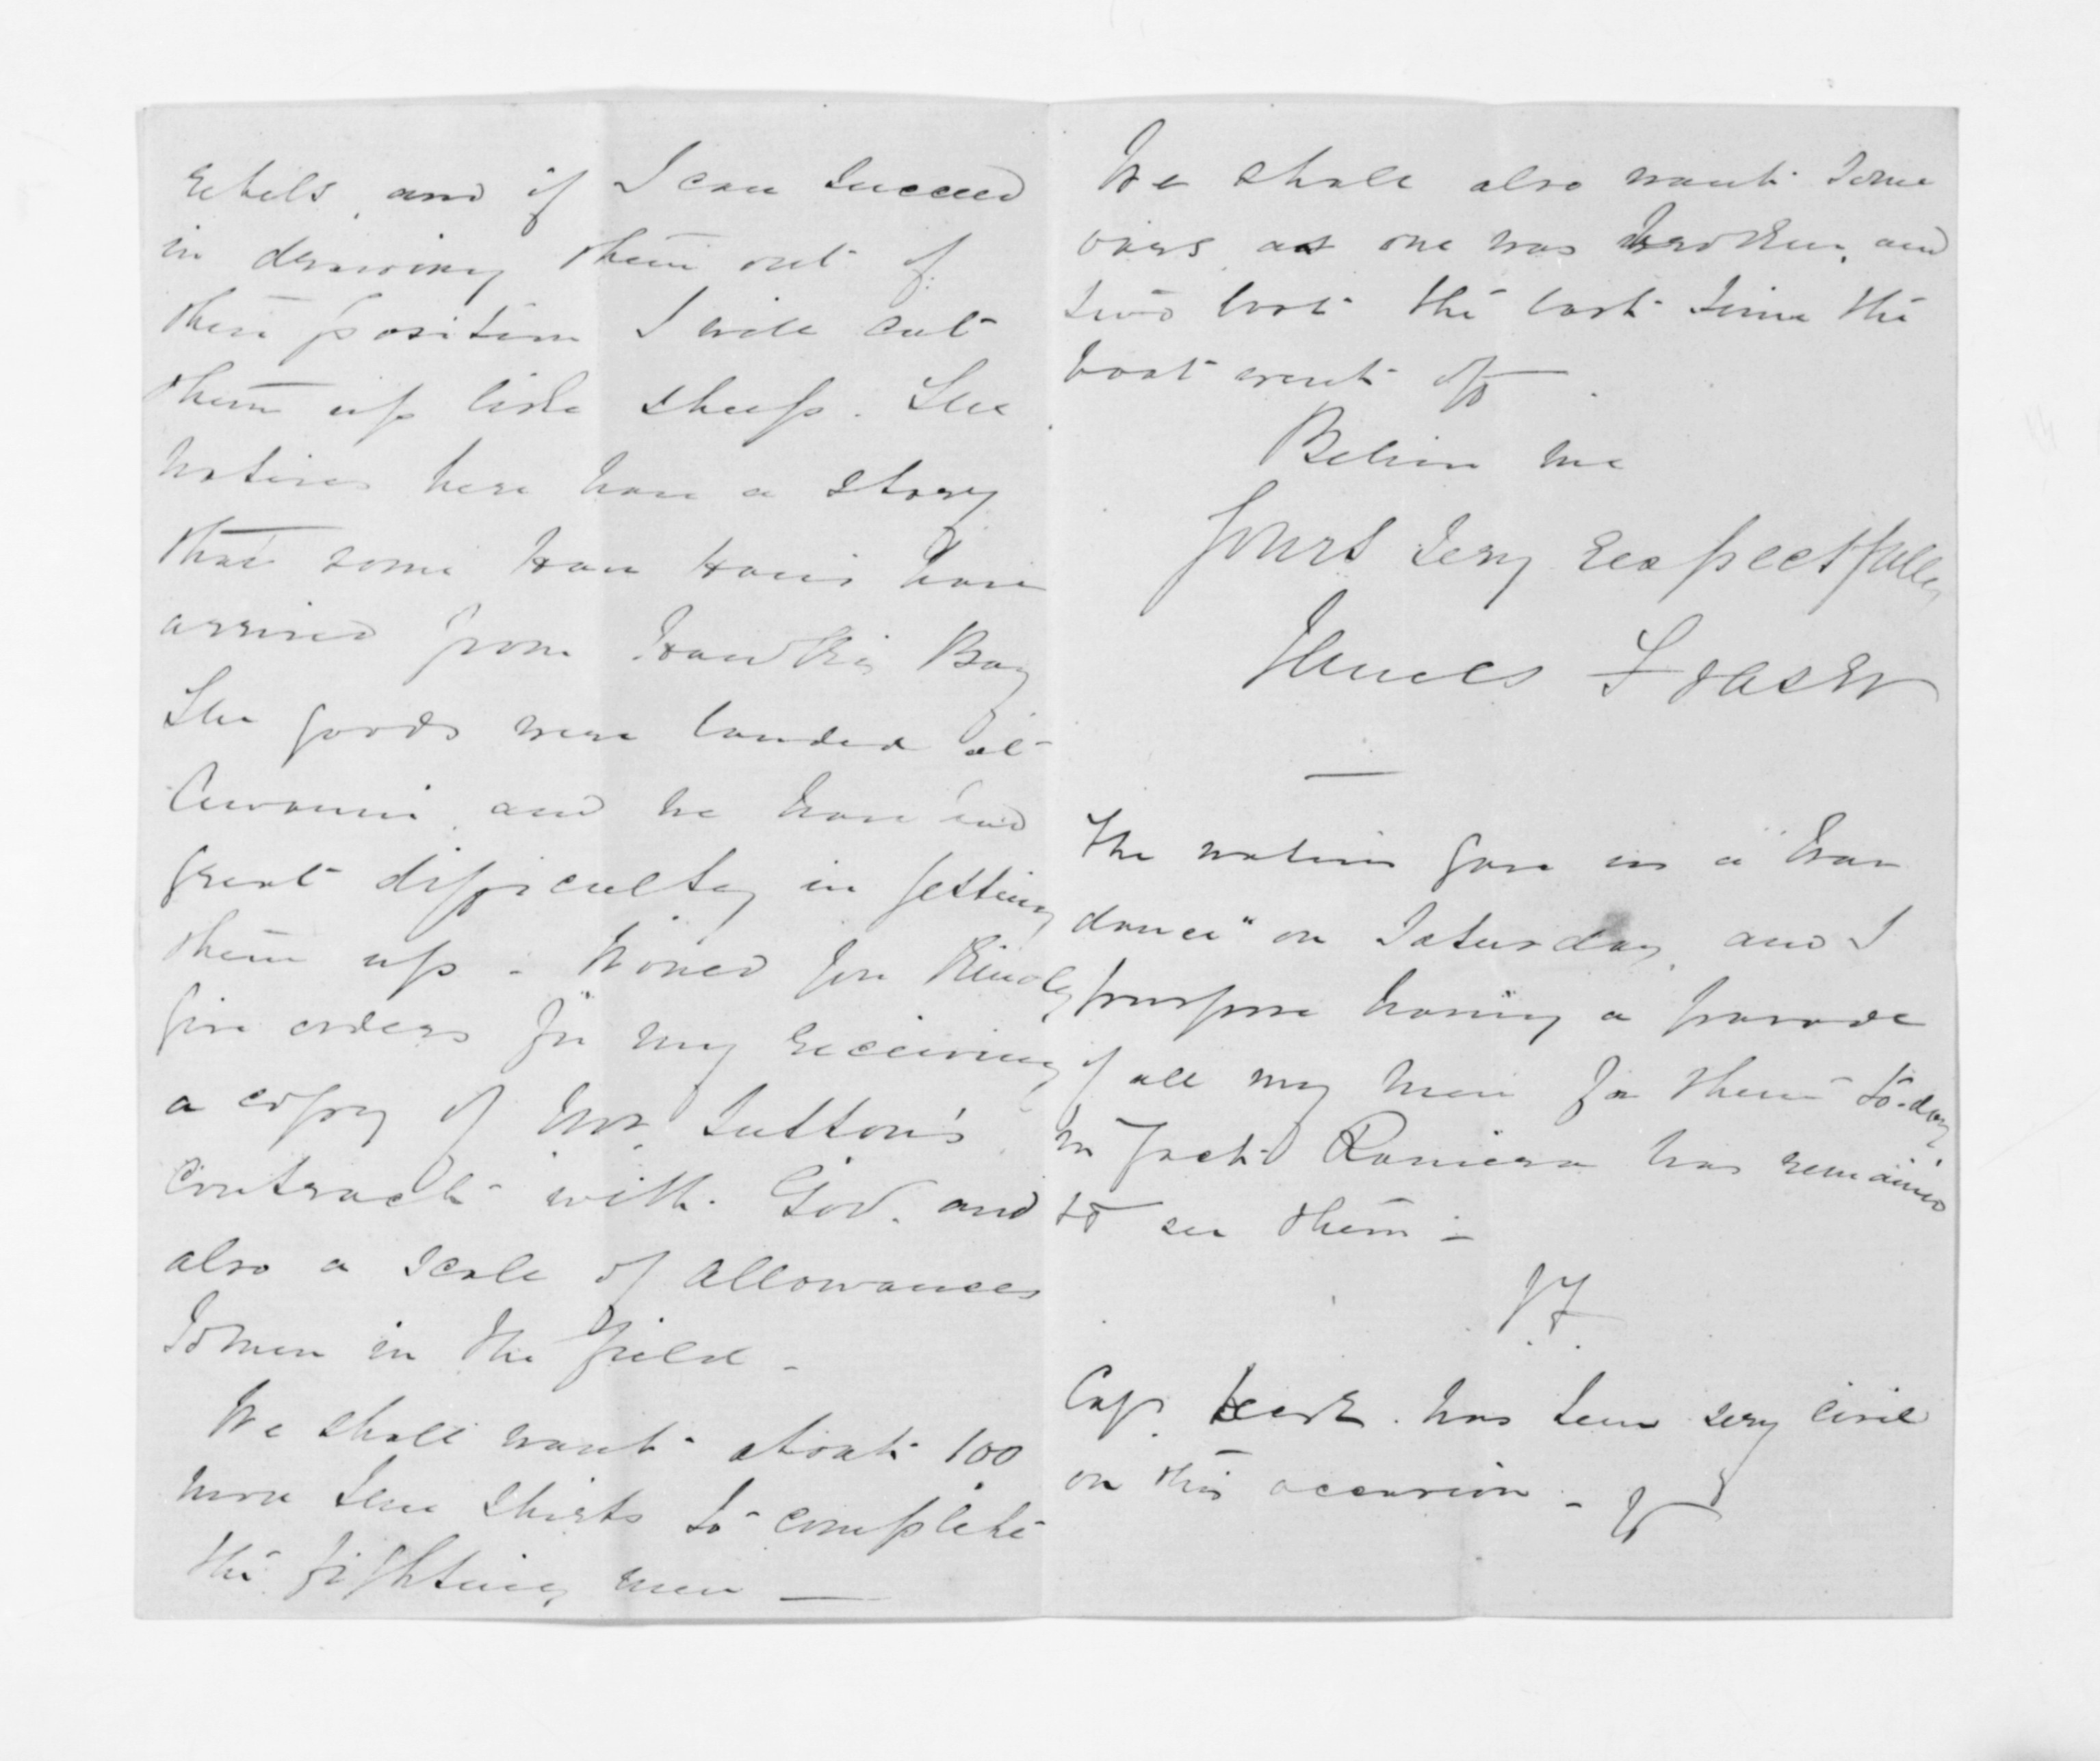 rebels, and if I can succeed
in drawing them out of
their position I will cut
them up like sheep. The
natives here have a story
that some Hau Haus have
arrived from Hawkes Bay
The goods were landed at
Awanui, and we have had
great difficulty in getting
them up - Would you kindly
give orders for my receiving
a copy of Mr. Sutton's
contract with Gov. and
also a scale of allowances
to men in the field -
We shall want about 100
more blue shirts to complete
the fighting men —
We shall also want some
oars, as one was broken, and
two lost the last time the
boat went off.
Believe me
Yours very respectfully
James Fraser
The natives gave us a "war
dance" on Saturday, and I
purpose having a parade
of all my men for them to-day
in fact Ramiera has remained
to see them -
J.F.
Cap. has been very civil
on this occasion - JF